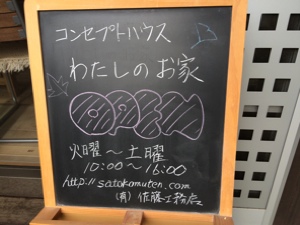 コンセプトハウス
わたしのお家
OPEN
火曜～土曜
10:00～16:00
http://satokomuten.com
(有)佐藤工務店